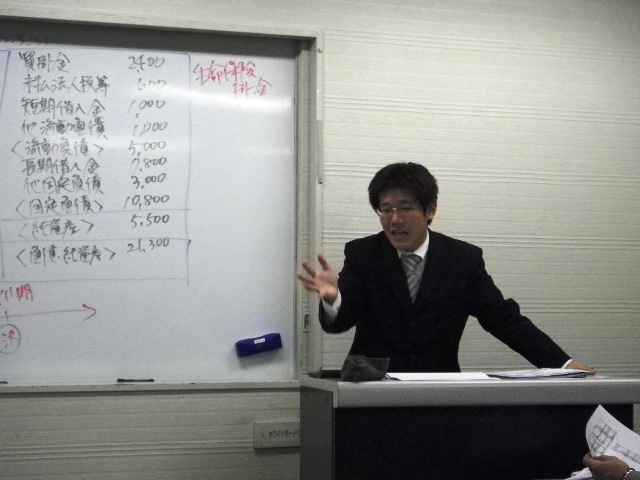 買掛金 2400
未払法人税等 600
短期借入金 1,000
他流動負債 1,000
<流動負債> 5,000
長期借入金 7,800
他固定負債 3,000
<固定負債> 10,800
<純資産> 5,500
<負債・純資産> 21,300
生命保険
掛金
期
決